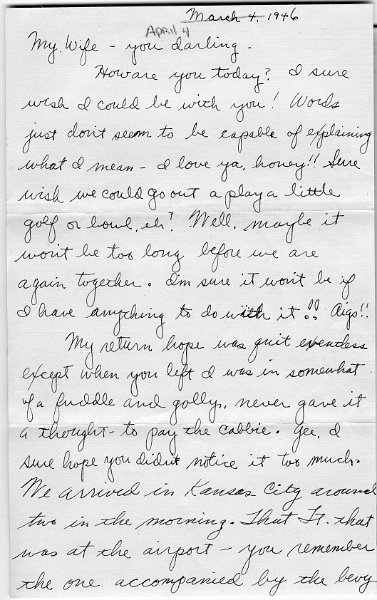 March 4, 1946
April 4
My Wife - you darling.
How are you today? I sure
wish I could be with you! Words
just don't seem to be capable of explaining
what I mean - I love ya, honey!! Sure
wish we could go out a play a little
golf or bowl, eh? Well, maybe it
won't be too long before we are
again together. I'm sure it won't be if
I have anything to do with it!! Aigo!!
My return hope was quit eventless
except when you left I was in somewhat
of a fuddle and golly, never gave it
a thought - to pay the cabbie. Gee, I
sure hope you didn't notice it too much.
We arrived in Kansas City around
two in the morning. That Lt. that
was at the airport - you remember
the one accompanied by the bevy